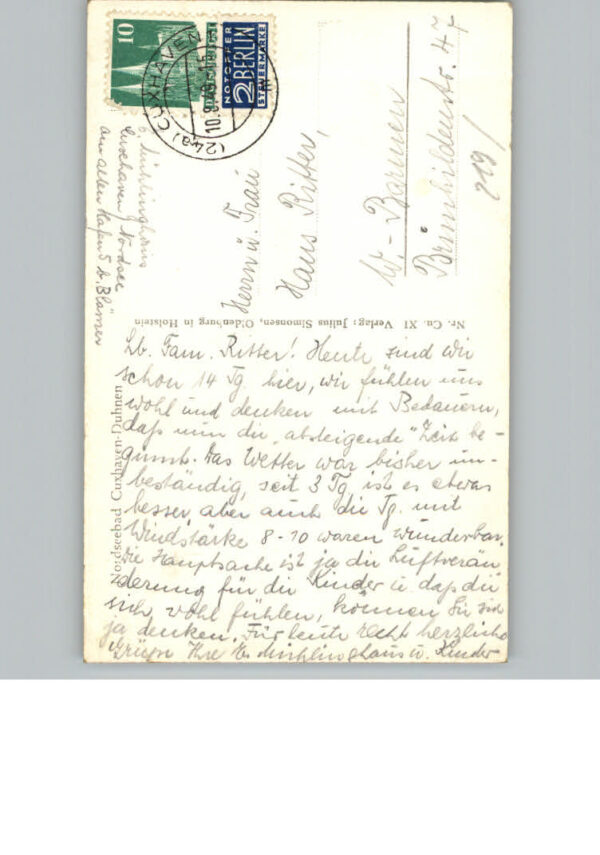 10
NOTOPFER
2 BERLIN
STEUERMARKE
(24a) CUXHAVEN
10.8.49
Cuxhaven / Nordsee
am alten Hafen 5 b. "Blämer"
Herrn u. Frau
Hans Ritter,
W.-Barmen
Brünhildenstr. 47
219/
Nr. Cu. XI Verlag: Julius Simonsen, Oldenburg in Holstein
Nordseebad Cuxhaven-Duhnen
Lb. Fam. Ritter! Heute sind wir
schon 14 Tg. hier, wir fühlen uns
wohl und denken mit Bedauern,
daß nun die „absteigende" Zeit be-
ginnt. Das Wetter war bisher un-
beständig, seit 3 Tg. ist es etwas
besser, aber auch die Tg. mit
Windstärke 8-10 waren wunderbar.
Die Hauptsache ist ja die Luftverän
derung für die Kinder u. daß die
sich wohl fühlen, können Sie sich
ja denken. Für heute recht herzliche
Grüße Ihre E. Mühlinghaus u. Kinder